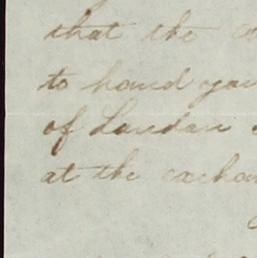 that the
to hand you
of London
at the exchan